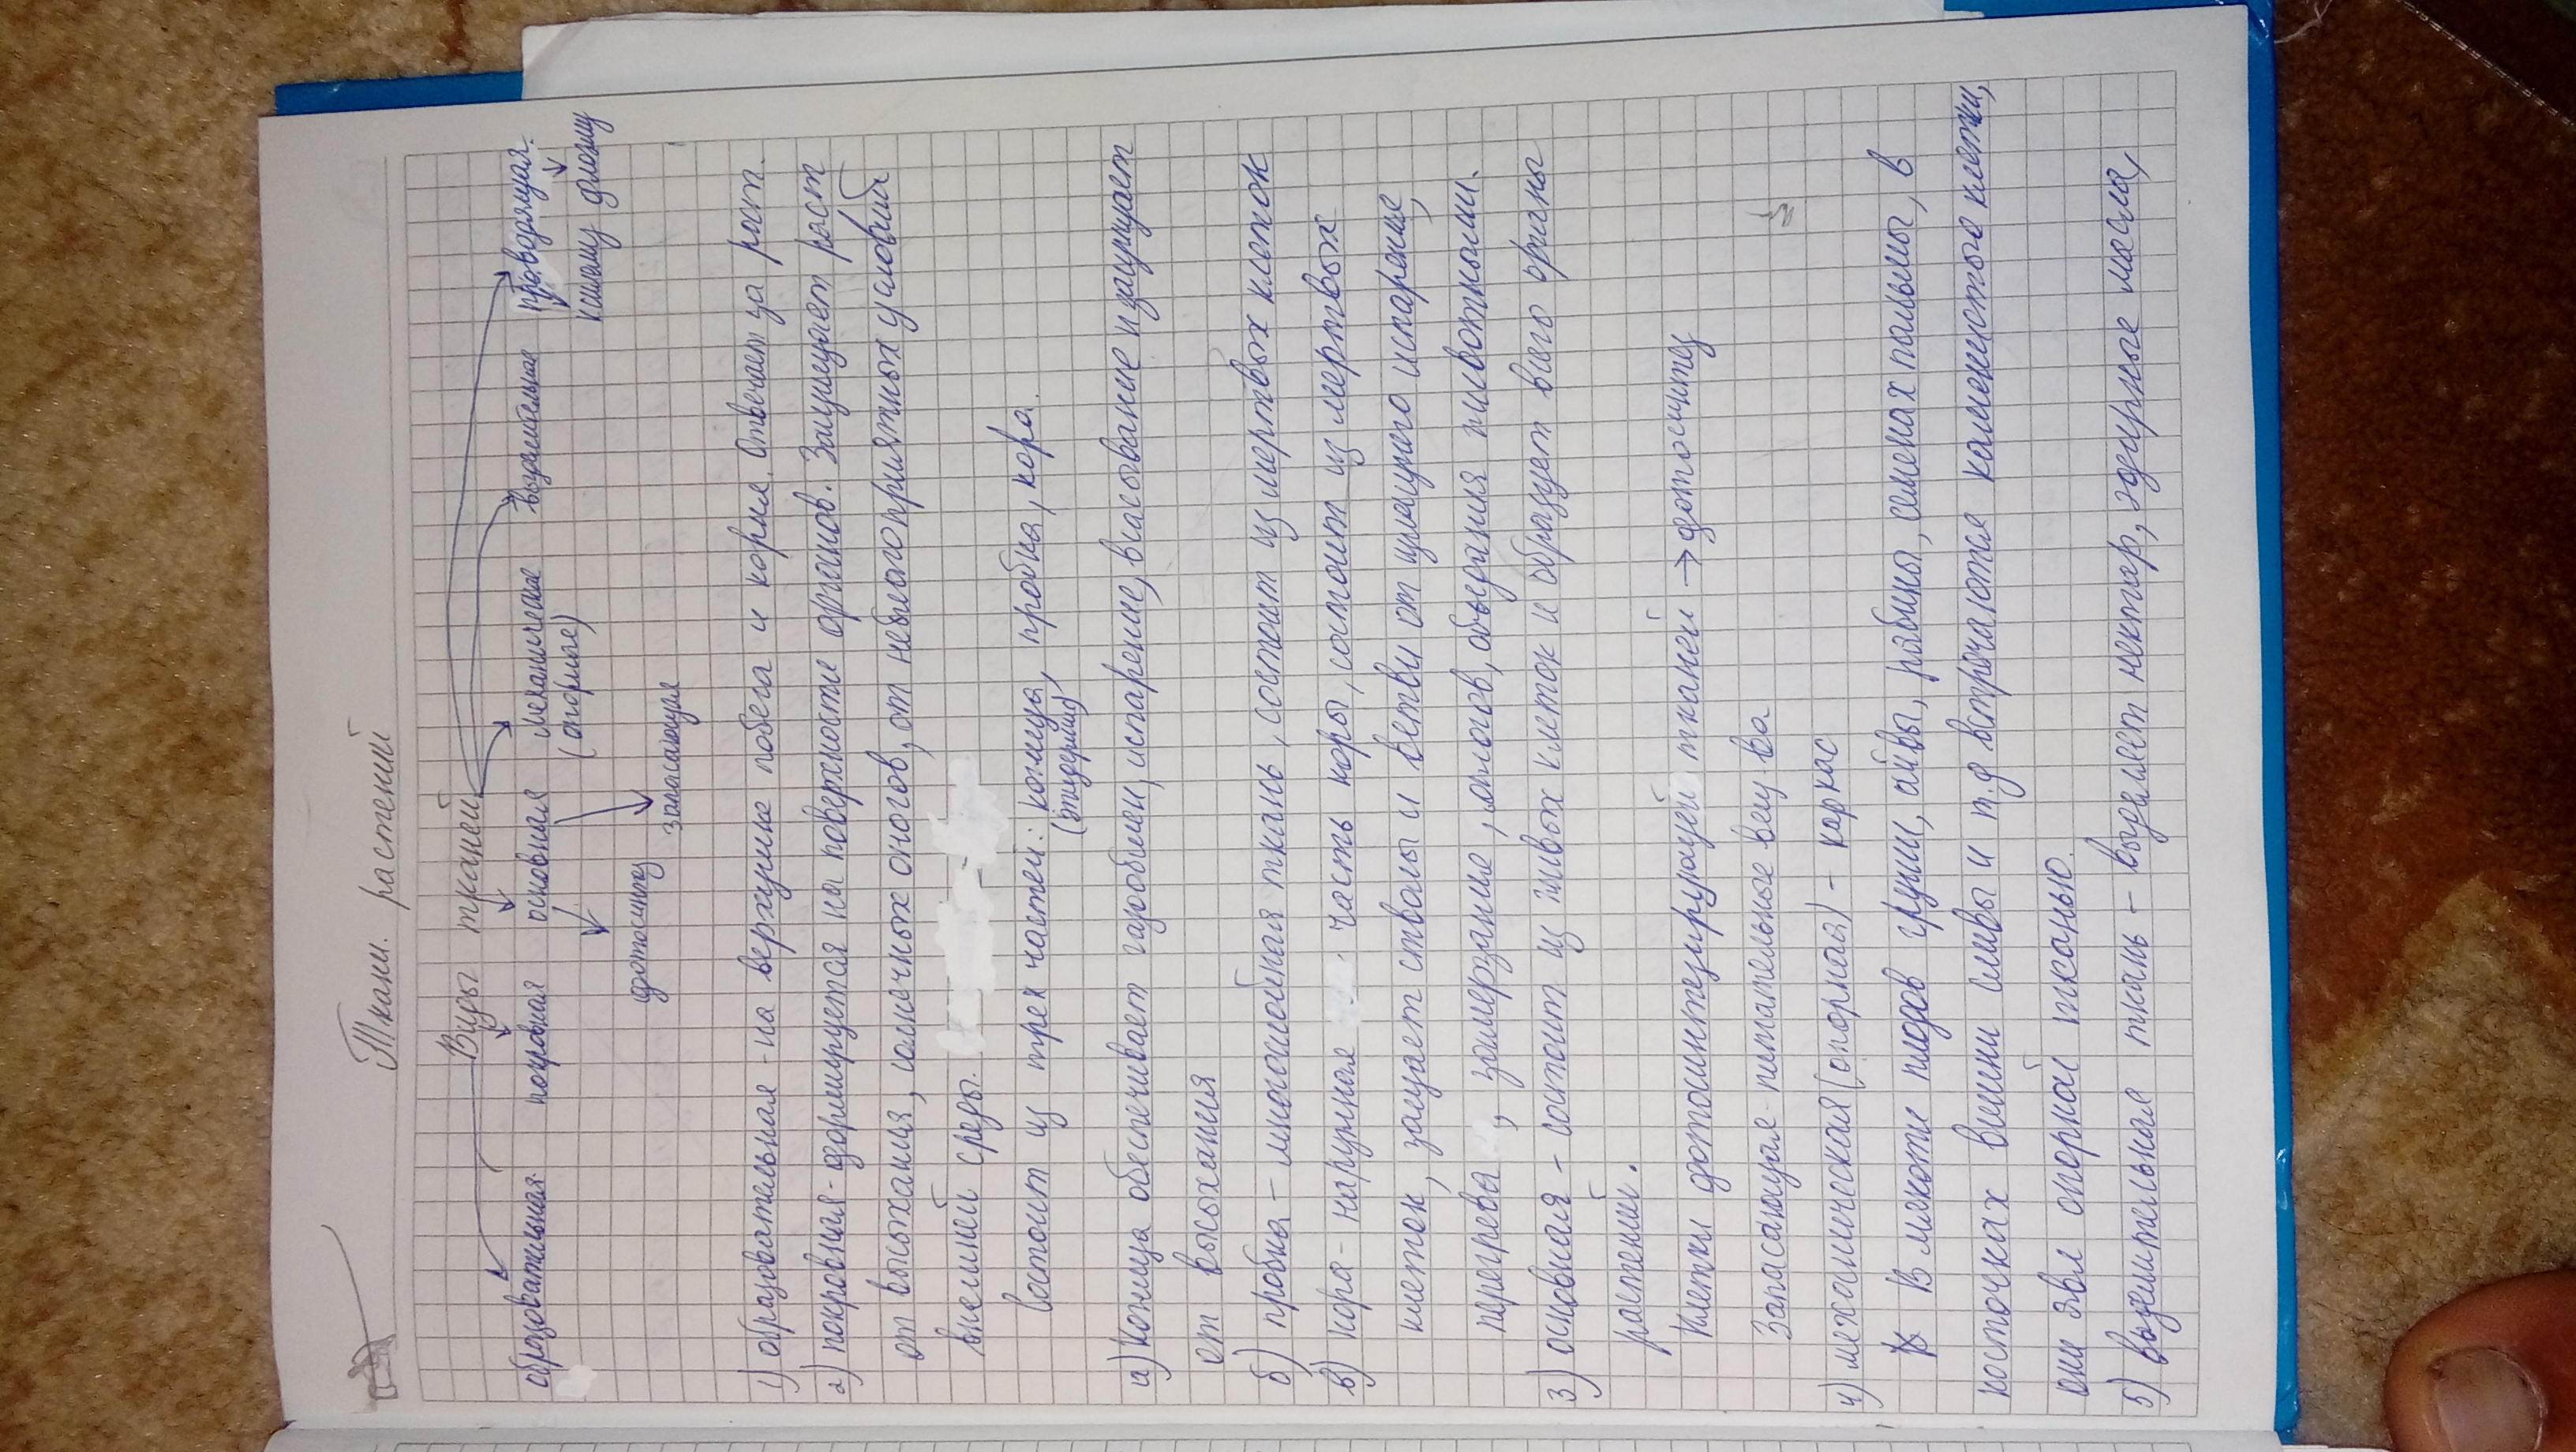 Ткани. растений
Виды тканей
образовательная покровная основная механические выделительные проводящая.
(опорные) ксилему флоэму
фотосинтез запасающая
1) образовательная - на верхушке побега и корня. Отвечает за рост.
2) покровная - формируется на поверхности органов. Защищает раст
от высыхания, солнечных ожогов, от неблагоприятных условий
внешней среды.
Состоит из трех частей: кожица, пробка, кора.
(эпидермис)
а) Кожица обеспечивает газообмен, испарение, всасывание и защищает
от высыхания
б) пробка - многослойная ткань, состоит из мертвых клеток
в) кора - наружная часть коры, состоит из мертвых
клеток, защает стволы и ветви от излишнего испарение,
перегрева, замерзание, ожогов, объедания животными.
3) основная - состоит из живых клеток и образует всего органы
растений.
Клетки фотосинтезирующей тканей → фотосинтез
Запасающая - питательное вещ-ва
4) механическая (опорная) - каркас
В мякоти плодов груши, айвы, рябины, семенах пальмы, в
косточках вишни сливы и т.д встречаются каменистые клетки,
они явл опорной тканью.
5) выделительная ткань - выделяет нектар, эфирные масла,